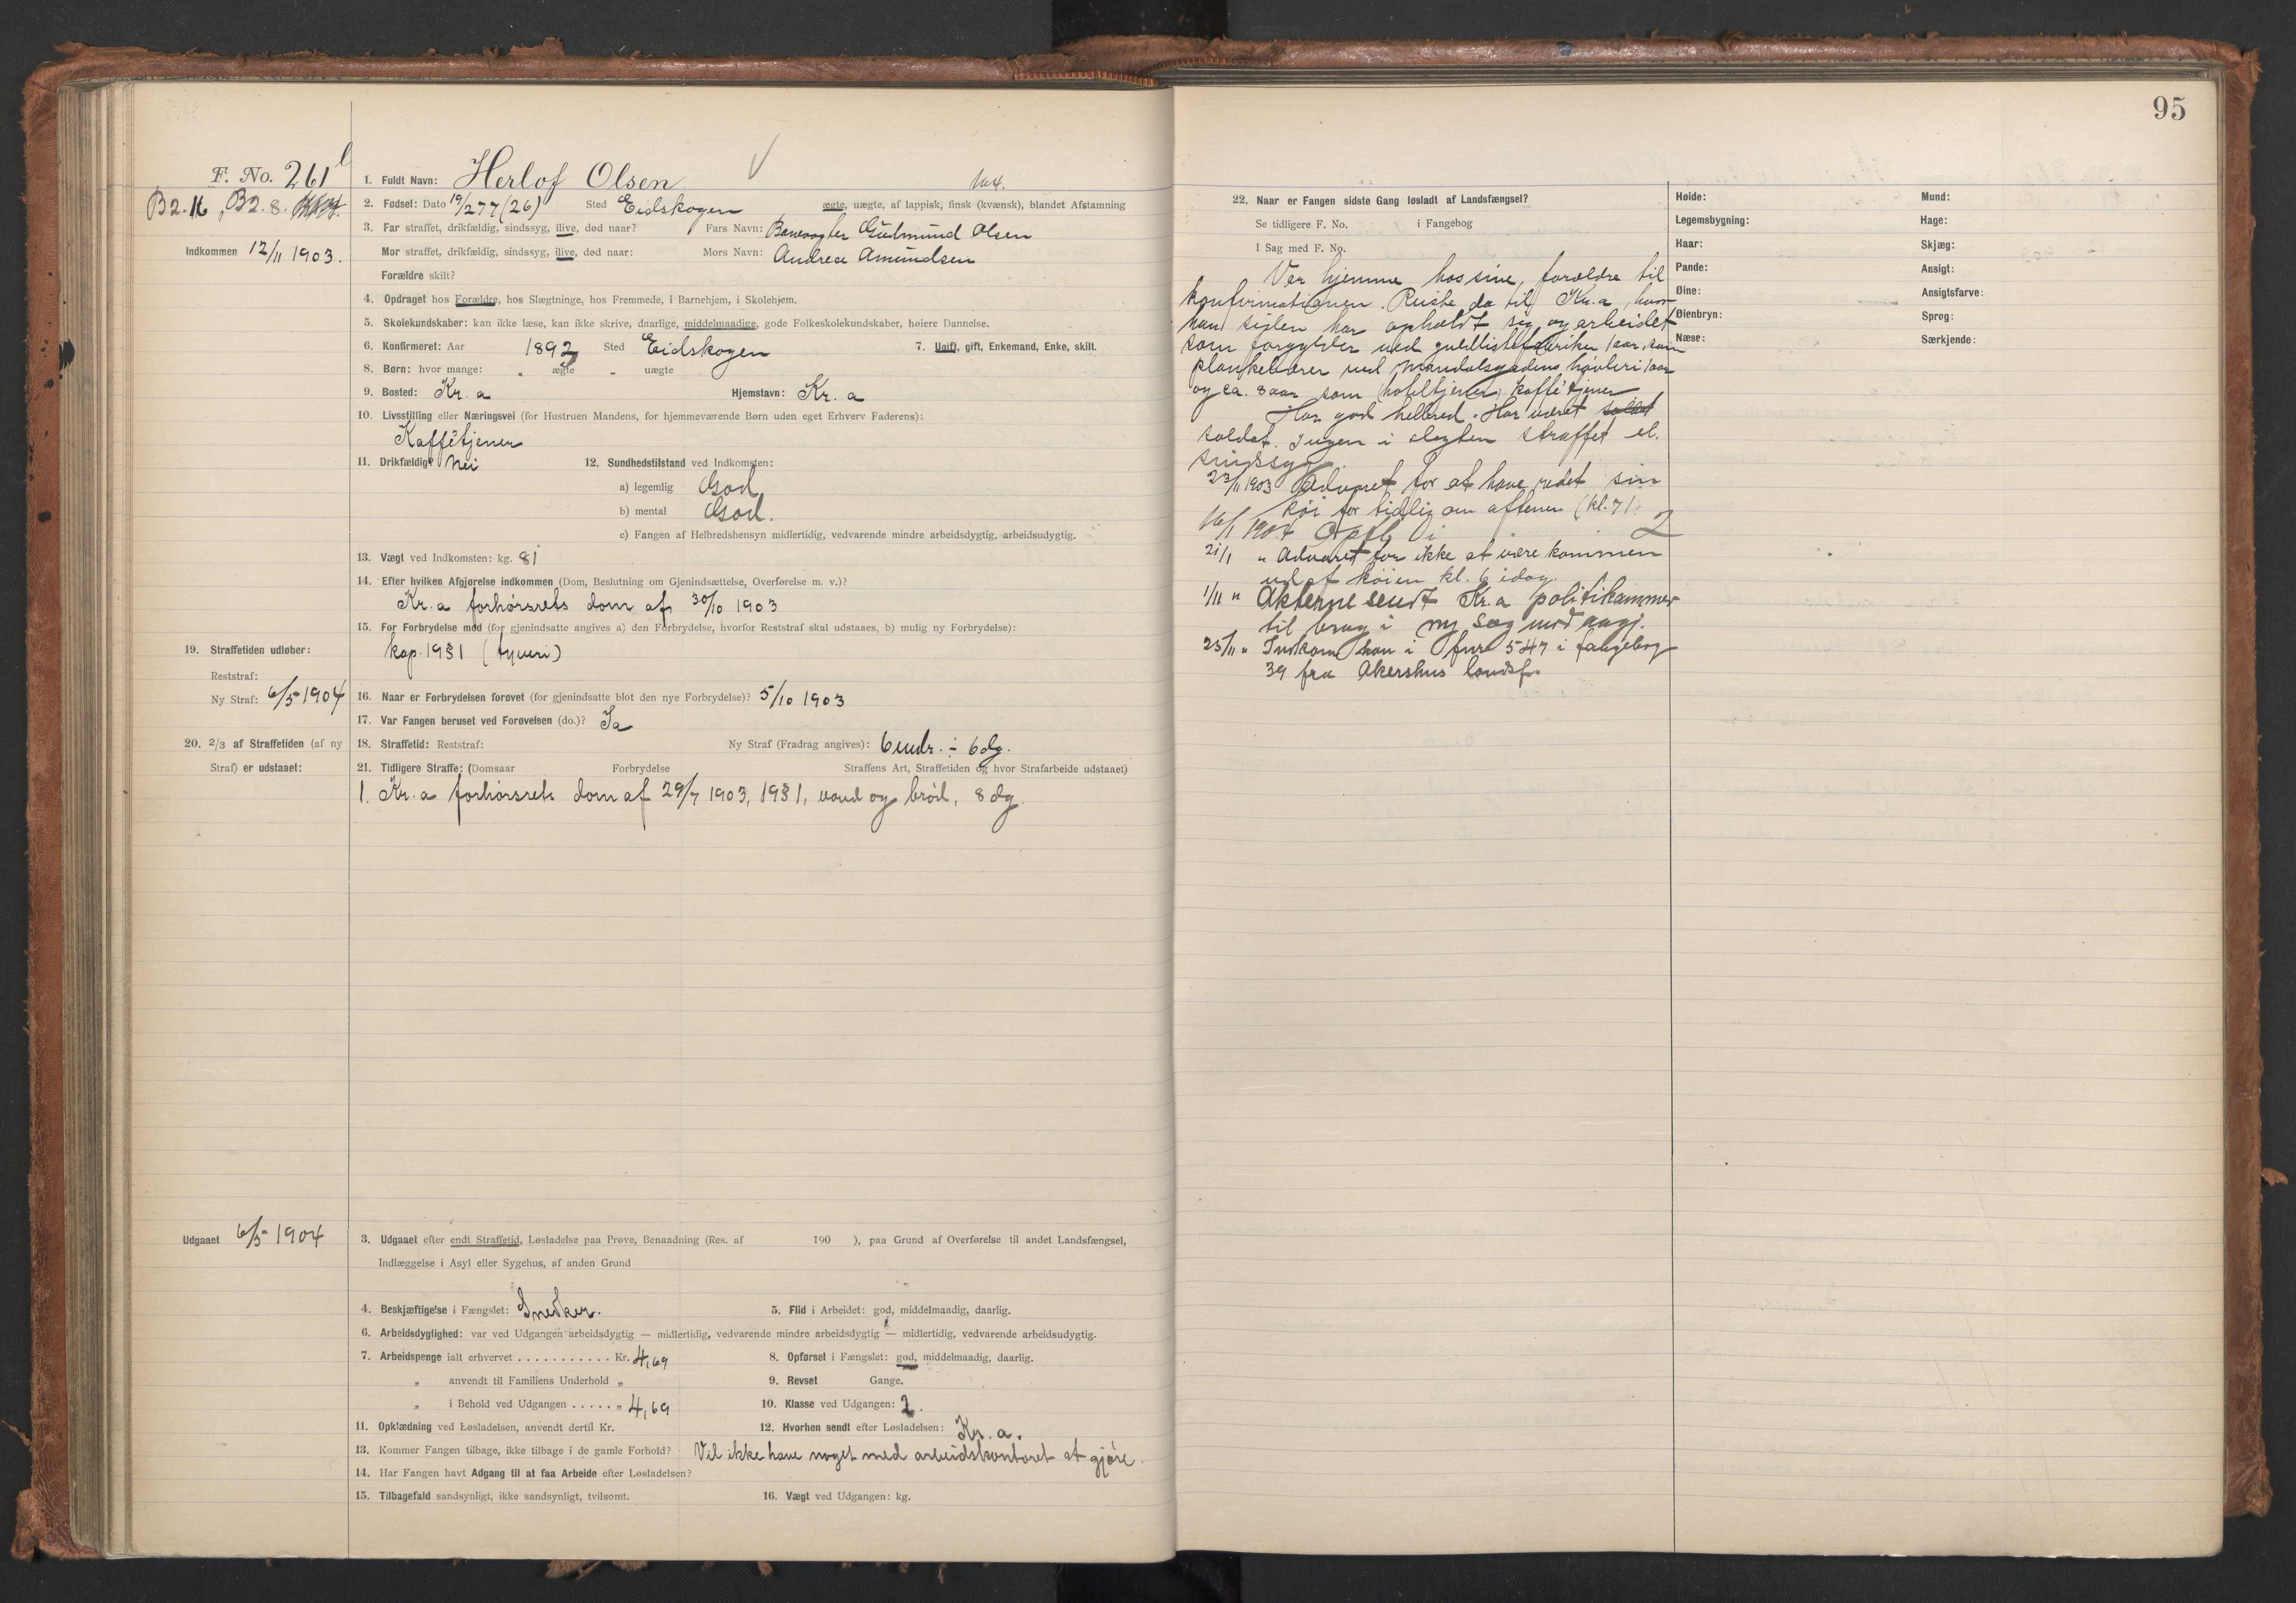 95
F. No. 261
B2.16, B2.8.
Indkommen 12/11 1903.
1. Fuldt Navn: Herlof Olsen
2. Fødsel: Dato 19/2 77 (26) Sted Eidskogen ægte, uægte, af lappisk, finsk (kvænsk), blandet Afstamning
3. Far straffet, drikfældig, sindssyg, ilive, død naar? Fars Navn: Banevogter Gudmund Olsen
Mor straffet, drikfældig, sindssyg, ilive, død naar: Mors Navn: Andrea Amundsen
Forældre skilt?
4. Opdraget hos Forældre, hos Slægtninge, hos Fremmede, i Barnehjem, i Skolehjem.
5. Skolekundskaber: kan ikke læse, kan ikke skrive, daarlige, middelmaadige, gode Folkeskolekundskaber, høiere Dannelse.
6. Konfirmeret: Aar 1892 Sted Eidskogen 7. Ugift, gift, Enkemand, Enke, skilt.
8. Børn: hvor mange: " ægte " uægte
9. Bosted: Kr.a Hjemstavn: Kr.a
10. Livsstilling eller Næringsvei (for Hustruen Mandens, for hjemmeværende Børn uden eget Erhverv Faderens):
Kaffétjener
11. Drikfældig? Nei 12. Sundhedstilstand ved Indkomsten:
a) legemlig God
b) mental God.
c) Fangen af Helbredshensyn midlertidig, vedvarende mindre arbeidsdygtig, arbeidsudygtig.
13. Vægt ved Indkomsten: kg. 81
14. Efter hvilken Afgjørelse indkommen (Dom, Beslutning om Gjenindsættelse, Overførelse m. v.)?
Kr.a forhørsrets dom af 30/10 1903
15. For Forbrydelse mod (for gjenindsatte angives a) den Forbrydelse, hvorfor Reststraf skal udstaaes, b) mulig ny Forbrydelse):
kap. 19 § 1 (tyveri)
19. Straffetiden udløber:
Reststraf:
Ny Straf: 6/5 1904
16. Naar er Forbrydelsen forøvet (for gjenindsatte blot den nye Forbrydelse)? 5/10 1903
17. Var Fangen beruset ved Forøvelsen (do.)? Ja
20. 2/3 af Straffetiden (af ny
Straf) er udstaaet:
18. Straffetid: Reststraf: Ny Straf (Fradrag angives): 6 mdr. ÷ 6 dg.
21. Tidligere Straffe: (Domsaar Forbrydelse Straffens Art, Straffetiden og hvor Strafarbeide udstaaet)
1. Kr.a forhørsrets dom af 29/7 1903, 19 § 1, vand og brød, 8 dg.
Udgaaet 6/5 1904
3. Udgaaet efter endt Straffetid, Løsladelse paa Prøve, Benaadning (Res. af 190 ), paa Grund af Overførelse til andet Landsfængsel,
Indlæggelse i Asyl eller Sygehus, af anden Grund
4. Beskjæftigelse i Fængslet: Snedker. 5. Flid i Arbeidet: god, middelmaadig, daarlig.
6. Arbeidsdygtighed: var ved Udgangen arbeidsdygtig — midlertidig, vedvarende mindre arbeidsdygtig — midlertidig, vedvarende arbeidsudygtig.
7. Arbeidspenge ialt erhvervet . . . . . . . . . . . Kr. 4,69 8. Opførsel i Fængslet: god, middelmaadig, daarlig.
" anvendt til Familiens Underhold " 9. Revset Gange.
" i Behold ved Udgangen . . . . . " 4,69 10. Klasse ved Udgangen: 2.
11. Opklædning ved Løsladelsen, anvendt dertil Kr. 12. Hvorhen sendt efter Løsladelsen: Kr.a.
13. Kommer Fangen tilbage, ikke tilbage i de gamle Forhold? Vil ikke have noget med arbeidskontoret at gjøre.
14. Har Fangen havt Adgang til at faa Arbeide efter Løsladelsen?
15. Tilbagefald sandsynligt, ikke sandsynligt, tvilsomt. 16. Vægt ved Udgangen: kg.
22. Naar er Fangen sidste Gang løsladt af Landsfængsel?
Se tidligere F. No. i Fangebog
I Sag med F. No.
Var hjemme hos sine forældre til
konfirmationen. Reiste da til Kr.a, hvor
han siden har opholdt sig og arbeidet
som forgylder ved guldlistefabriken 1 aar, som
plankebærer ved Mandalsgadens høvleri 1 aar
og ca. 8 aar som hoteltjener, kaffétjener
Har god helbred. Har været soldat
soldat. Ingen i slegten straffet el.
sindssyg.
23/11 1903 Advaret for at have redet sin
køi for tidlig om aftenen (kl. 7).
16/1 1904 Opfl. i 2
21/1 " Advaret for ikke at være kommen
ud af køien kl. 6 idag.
1/11 " Akterne sendt Kr.a politikammer
til brug i ny sag mod angj.
25/11 " Indkom han i fnr 547 i fangebog
39 fra Akershus landsf.
Høide: Mund:
Legemsbygning: Hage:
Haar: Skjæg:
Pande: Ansigt:
Øine: Ansigtsfarve:
Øienbryn: Sprog:
Næse: Særkjende: